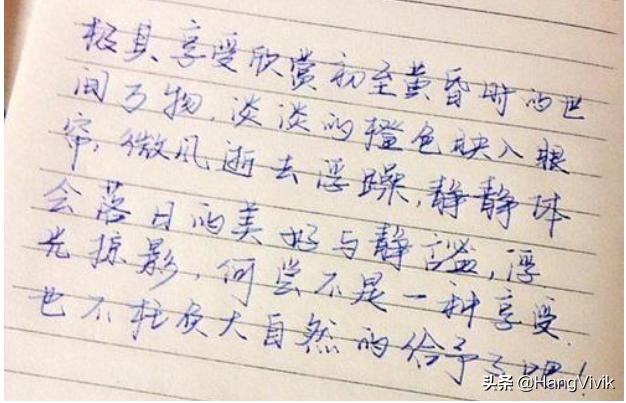 极具享受欣赏初至黄昏时的世
间万物，淡淡的橙色映入眼
帘，微风逝去浮躁，静静体
会落日的美好与静谧，浮
光掠影，何尝不是一种享受
也不枉负大自然的给予了吧！
头条 @HangVivik